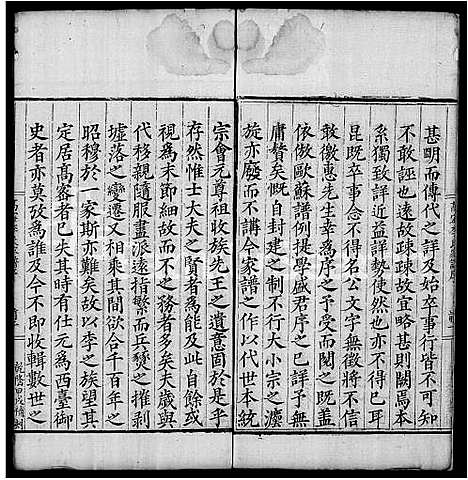 甚明而傳代之詳及始卒事行皆不可知
不敢誣也遠故踈踈故宜略甚則闕焉本
系獨致詳近益詳勢使然也不得已耳
昆既卒事念不得名公文字無徵將不信
敢徼惠先生幸為序之予受而閱之既盖
依倣歐蘇譜例提學盛君序之已詳予無
庸贅矣慨自封建之制不行大小宗之灋
旋亦廢而不講令家譜之作以代世本統
宗會元尊祖收族先王之遺意固於是乎
存然惟士大夫之賢者為能及此自餘或
視為末節細故而不之務者多矣夫歲與
代移親隨服盡派遠指繁而兵燹之摧剥
墟落之變遷又相乘其間欲合千百年之
昭穆於一家斯亦難矣故以李之族望其
定居高密者已失其時有仕元為西臺御
史者亦莫攷為誰及今不即收輯數世之
乾隆甲戌補刻